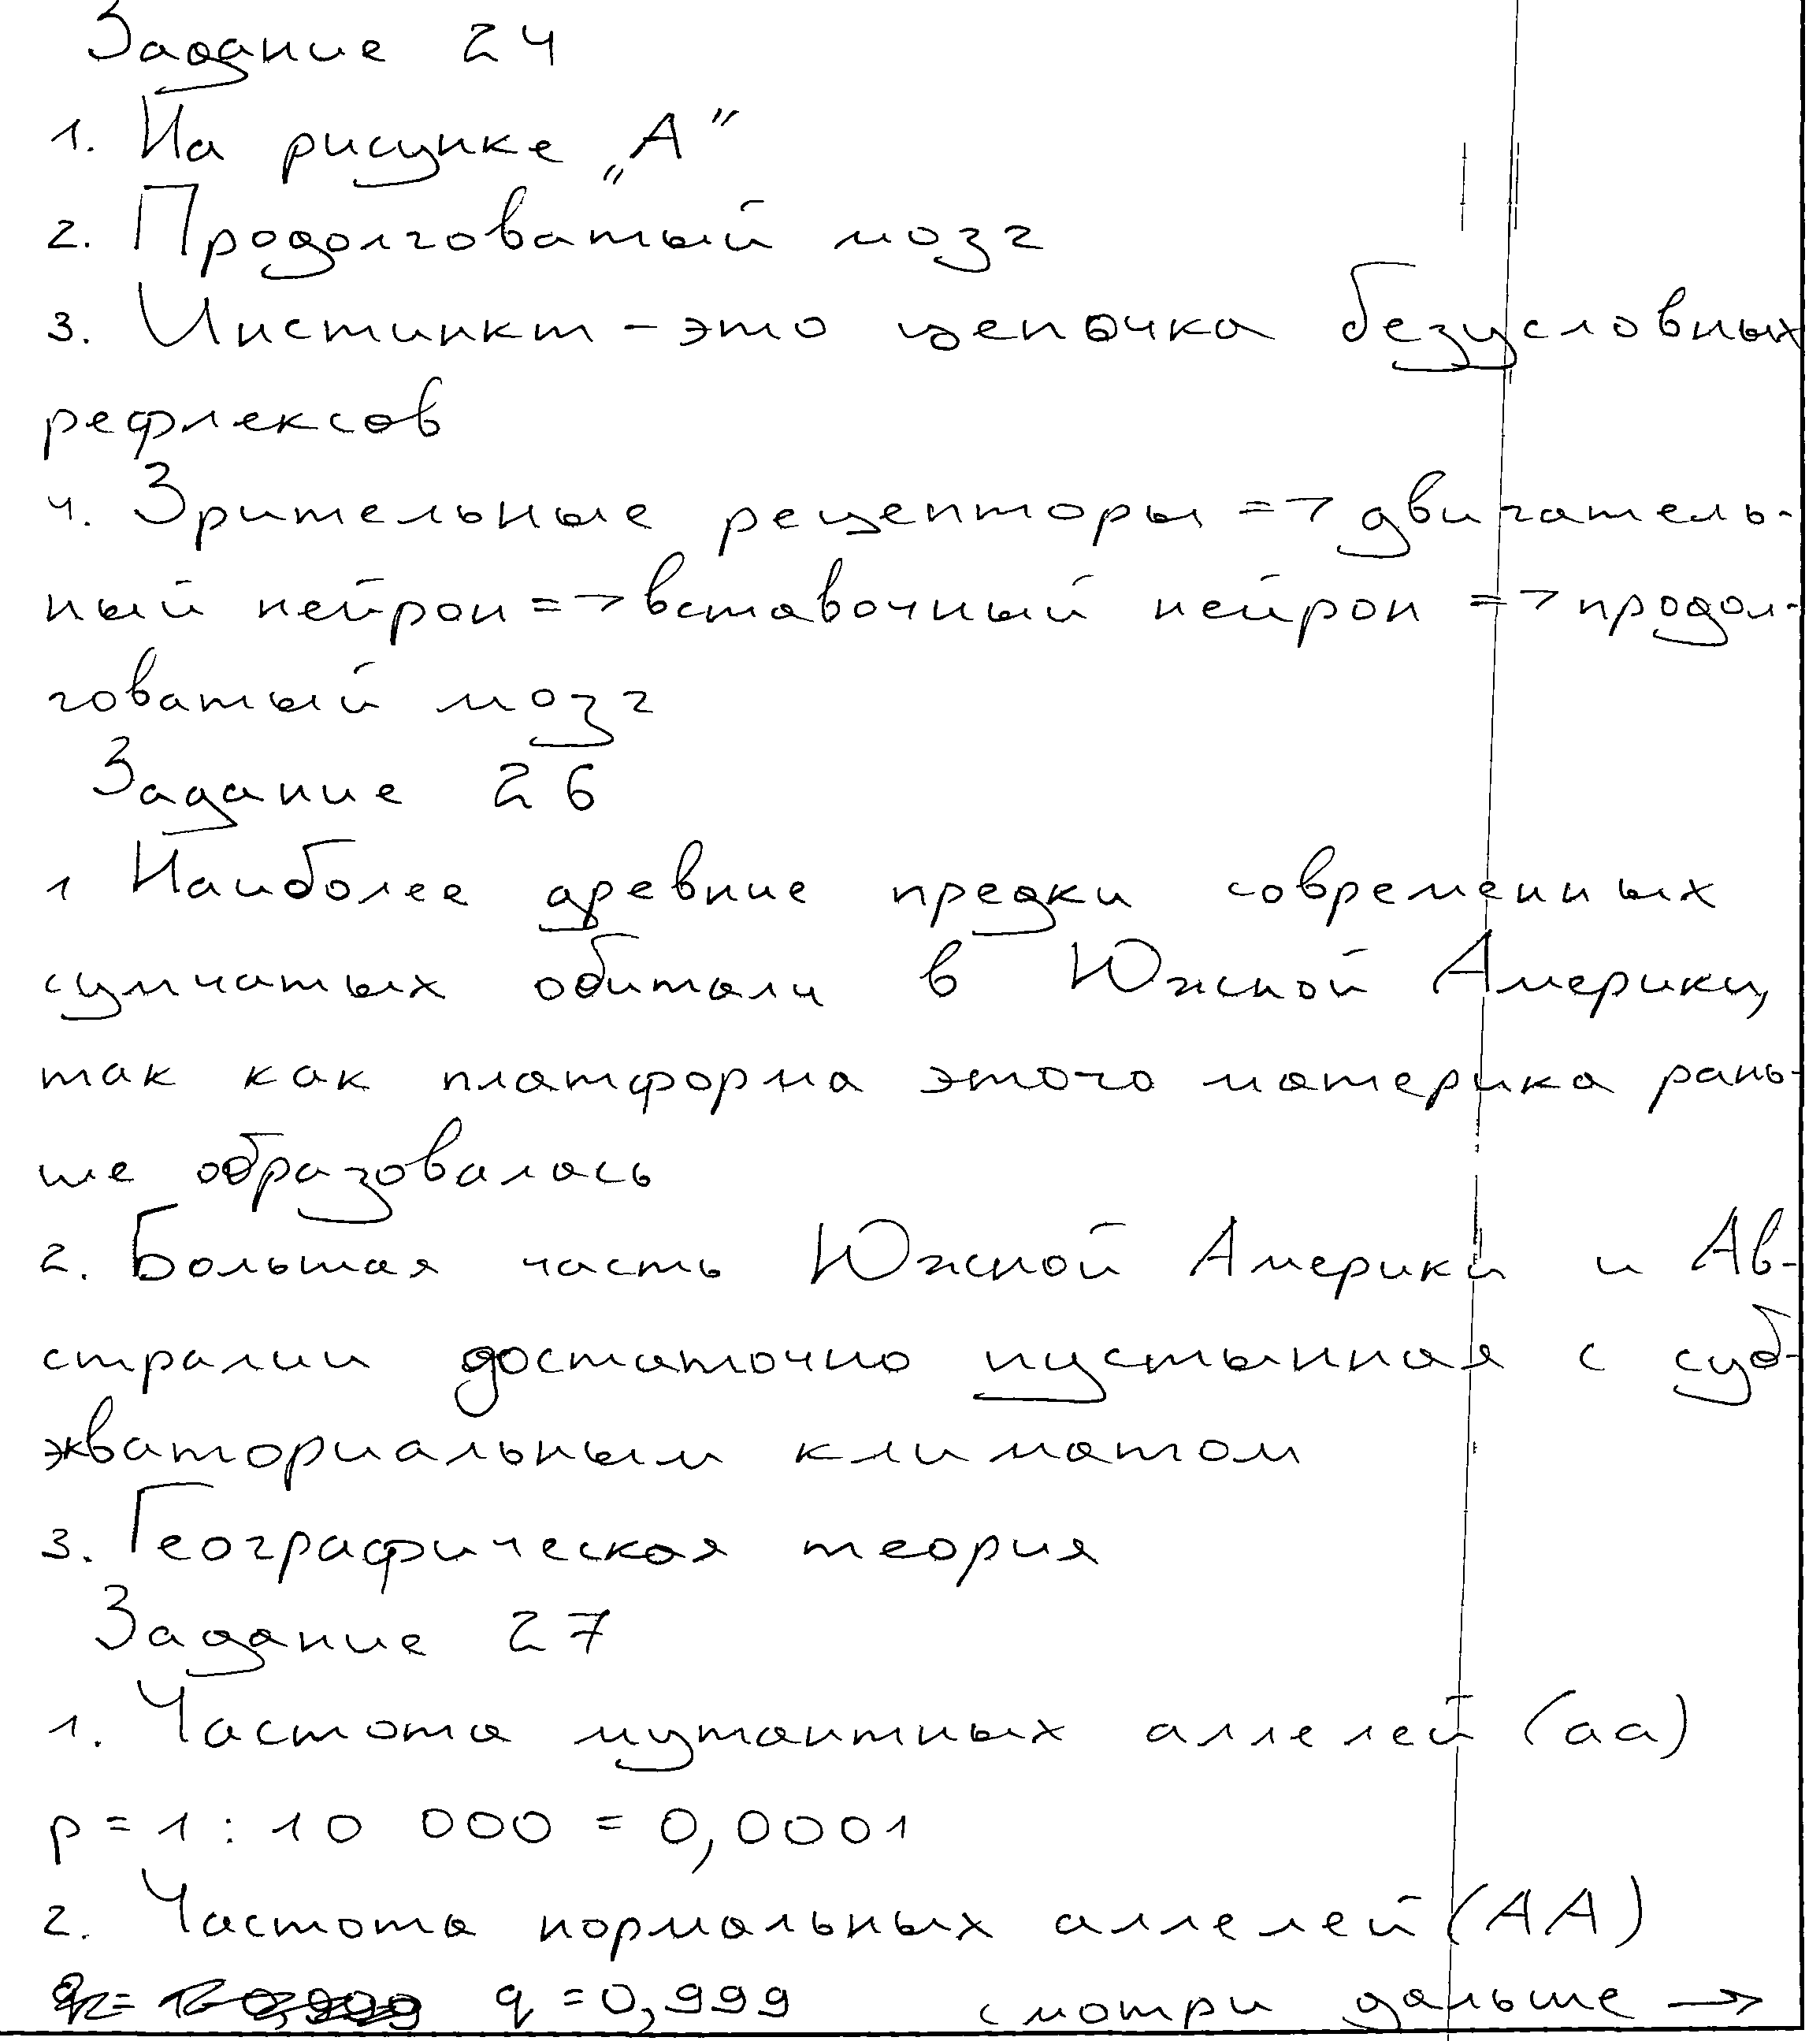 Задание 24
1. На рисунке „А"
2. Продолговатый мозг
3. Инстинкт - это цепочка безусловных
рефлексов
4. Зрительные рецепторы => двигатель-
ный нейрон => вставочный нейрон => продол-
говатый мозг
Задание 26
1 Наиболее древние предки современных
сумчатых обитали в Южной Америки,
так как платформа этого материка рань-
ше образовалась
2. Большая часть Южной Америки и Ав-
стралии достаточно пустынная с суб-
экваториальным климатом
3. Географическая теория
Задание 27
1. Частота мутантных аллелей (аа)
p = 1 : 10 000 = 0,0001
2. Частота нормальных аллелей (АА)
q = 0,999 смотри дальше →